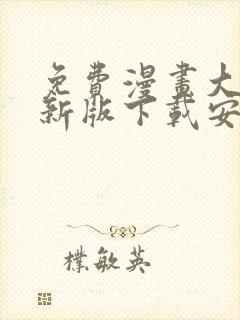 免費漫畫大
新版下載安
樸敏英